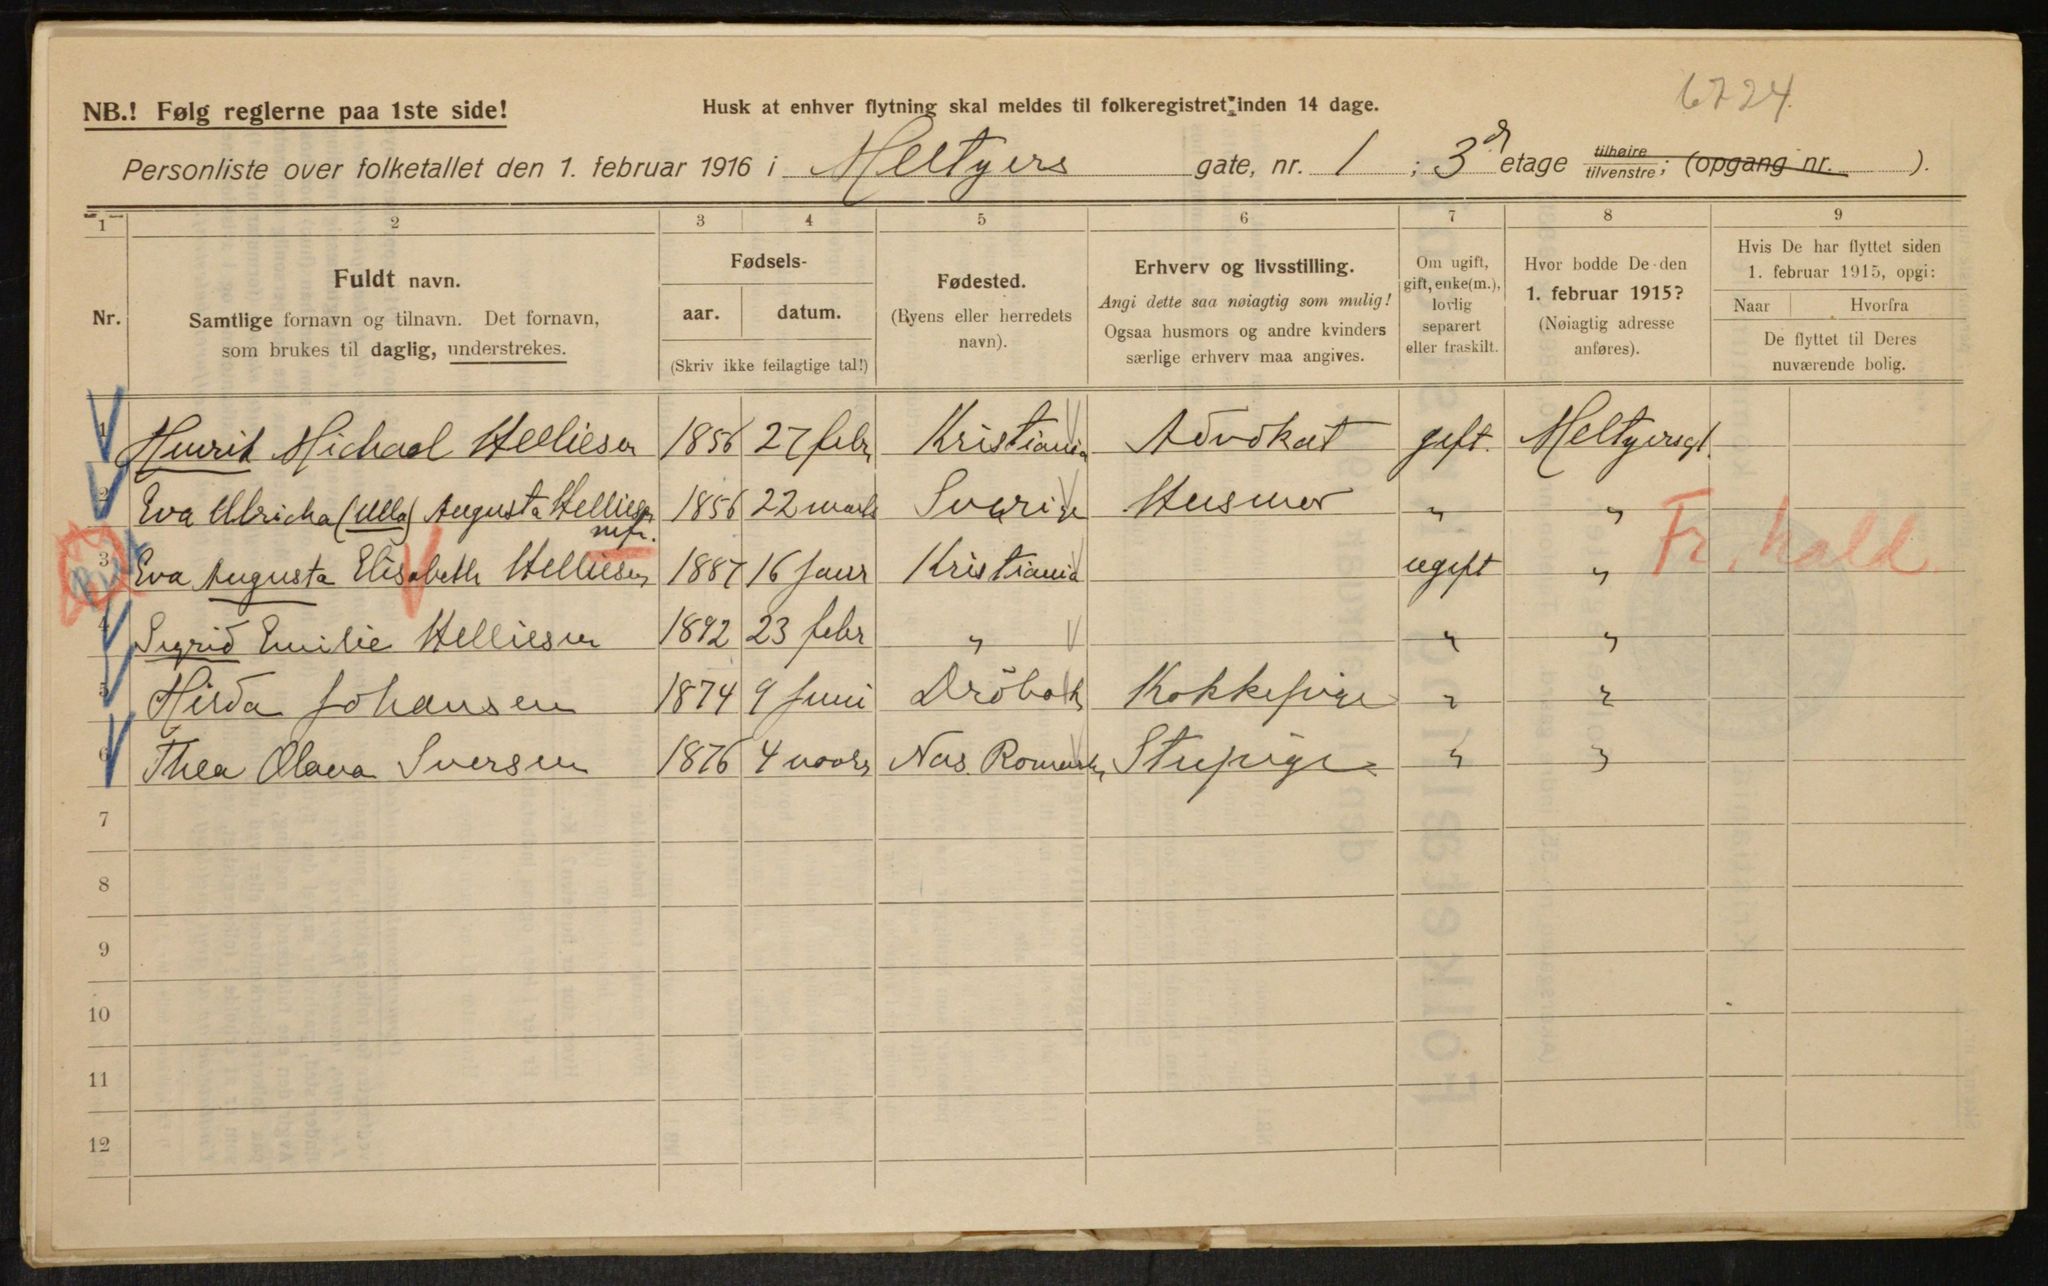 6724.
NB.! Følg reglerne paa 1ste side!
Husk at enhver flytning skal meldes til folkeregistret inden 14 dage.
Personliste over folketallet den 1. februar 1916 i Meltyers gate, nr. 1 ; 3d etage tilhøire/tilvenstre; (opgang nr. ).
1 2 3 4 5 6 7 8 9
Nr.
Fuldt navn.
Samtlige fornavn og tilnavn. Det fornavn,
som brukes til daglig, understrekes.
Fødsels-
aar. datum.
(Skriv ikke feilagtige tal!)
Fødested.
(Byens eller herredets
navn).
Erhverv og livsstilling.
Angi dette saa nøiagtig som mulig!
Ogsaa husmors og andre kvinders
særlige erhverv maa angives.
Om ugift,
gift, enke(m.),
lovlig
separert
eller fraskilt.
Hvor bodde De den
1. februar 1915?
(Nøiagtig adresse
anføres).
Hvis De har flyttet siden
1. februar 1915, opgi:
Naar Hvorfra
De flyttet til Deres
nuværende bolig.
1 Henrik Michael Helliesen 1856 27 febr Kristiania Advokat gift. Meltyersgt.
2 Eva Ulricha (Ulla) Augusta Helliesen 1856 22 marts Sverige Husmor " "
3 Eva Augusta Elisabeth Helliesen 1887 16 Janr Kristiania ugift " Fr. hald.
4 Sigrid Emilie Helliesen 1892 23 febr " " "
5 Hilda Johansen 1874 9 Juni Dröbak Kokkepige " "
6 Thea Olava Iversen 1876 4 Nes. Romerike Stupige " "
7
8
9
10
11
12